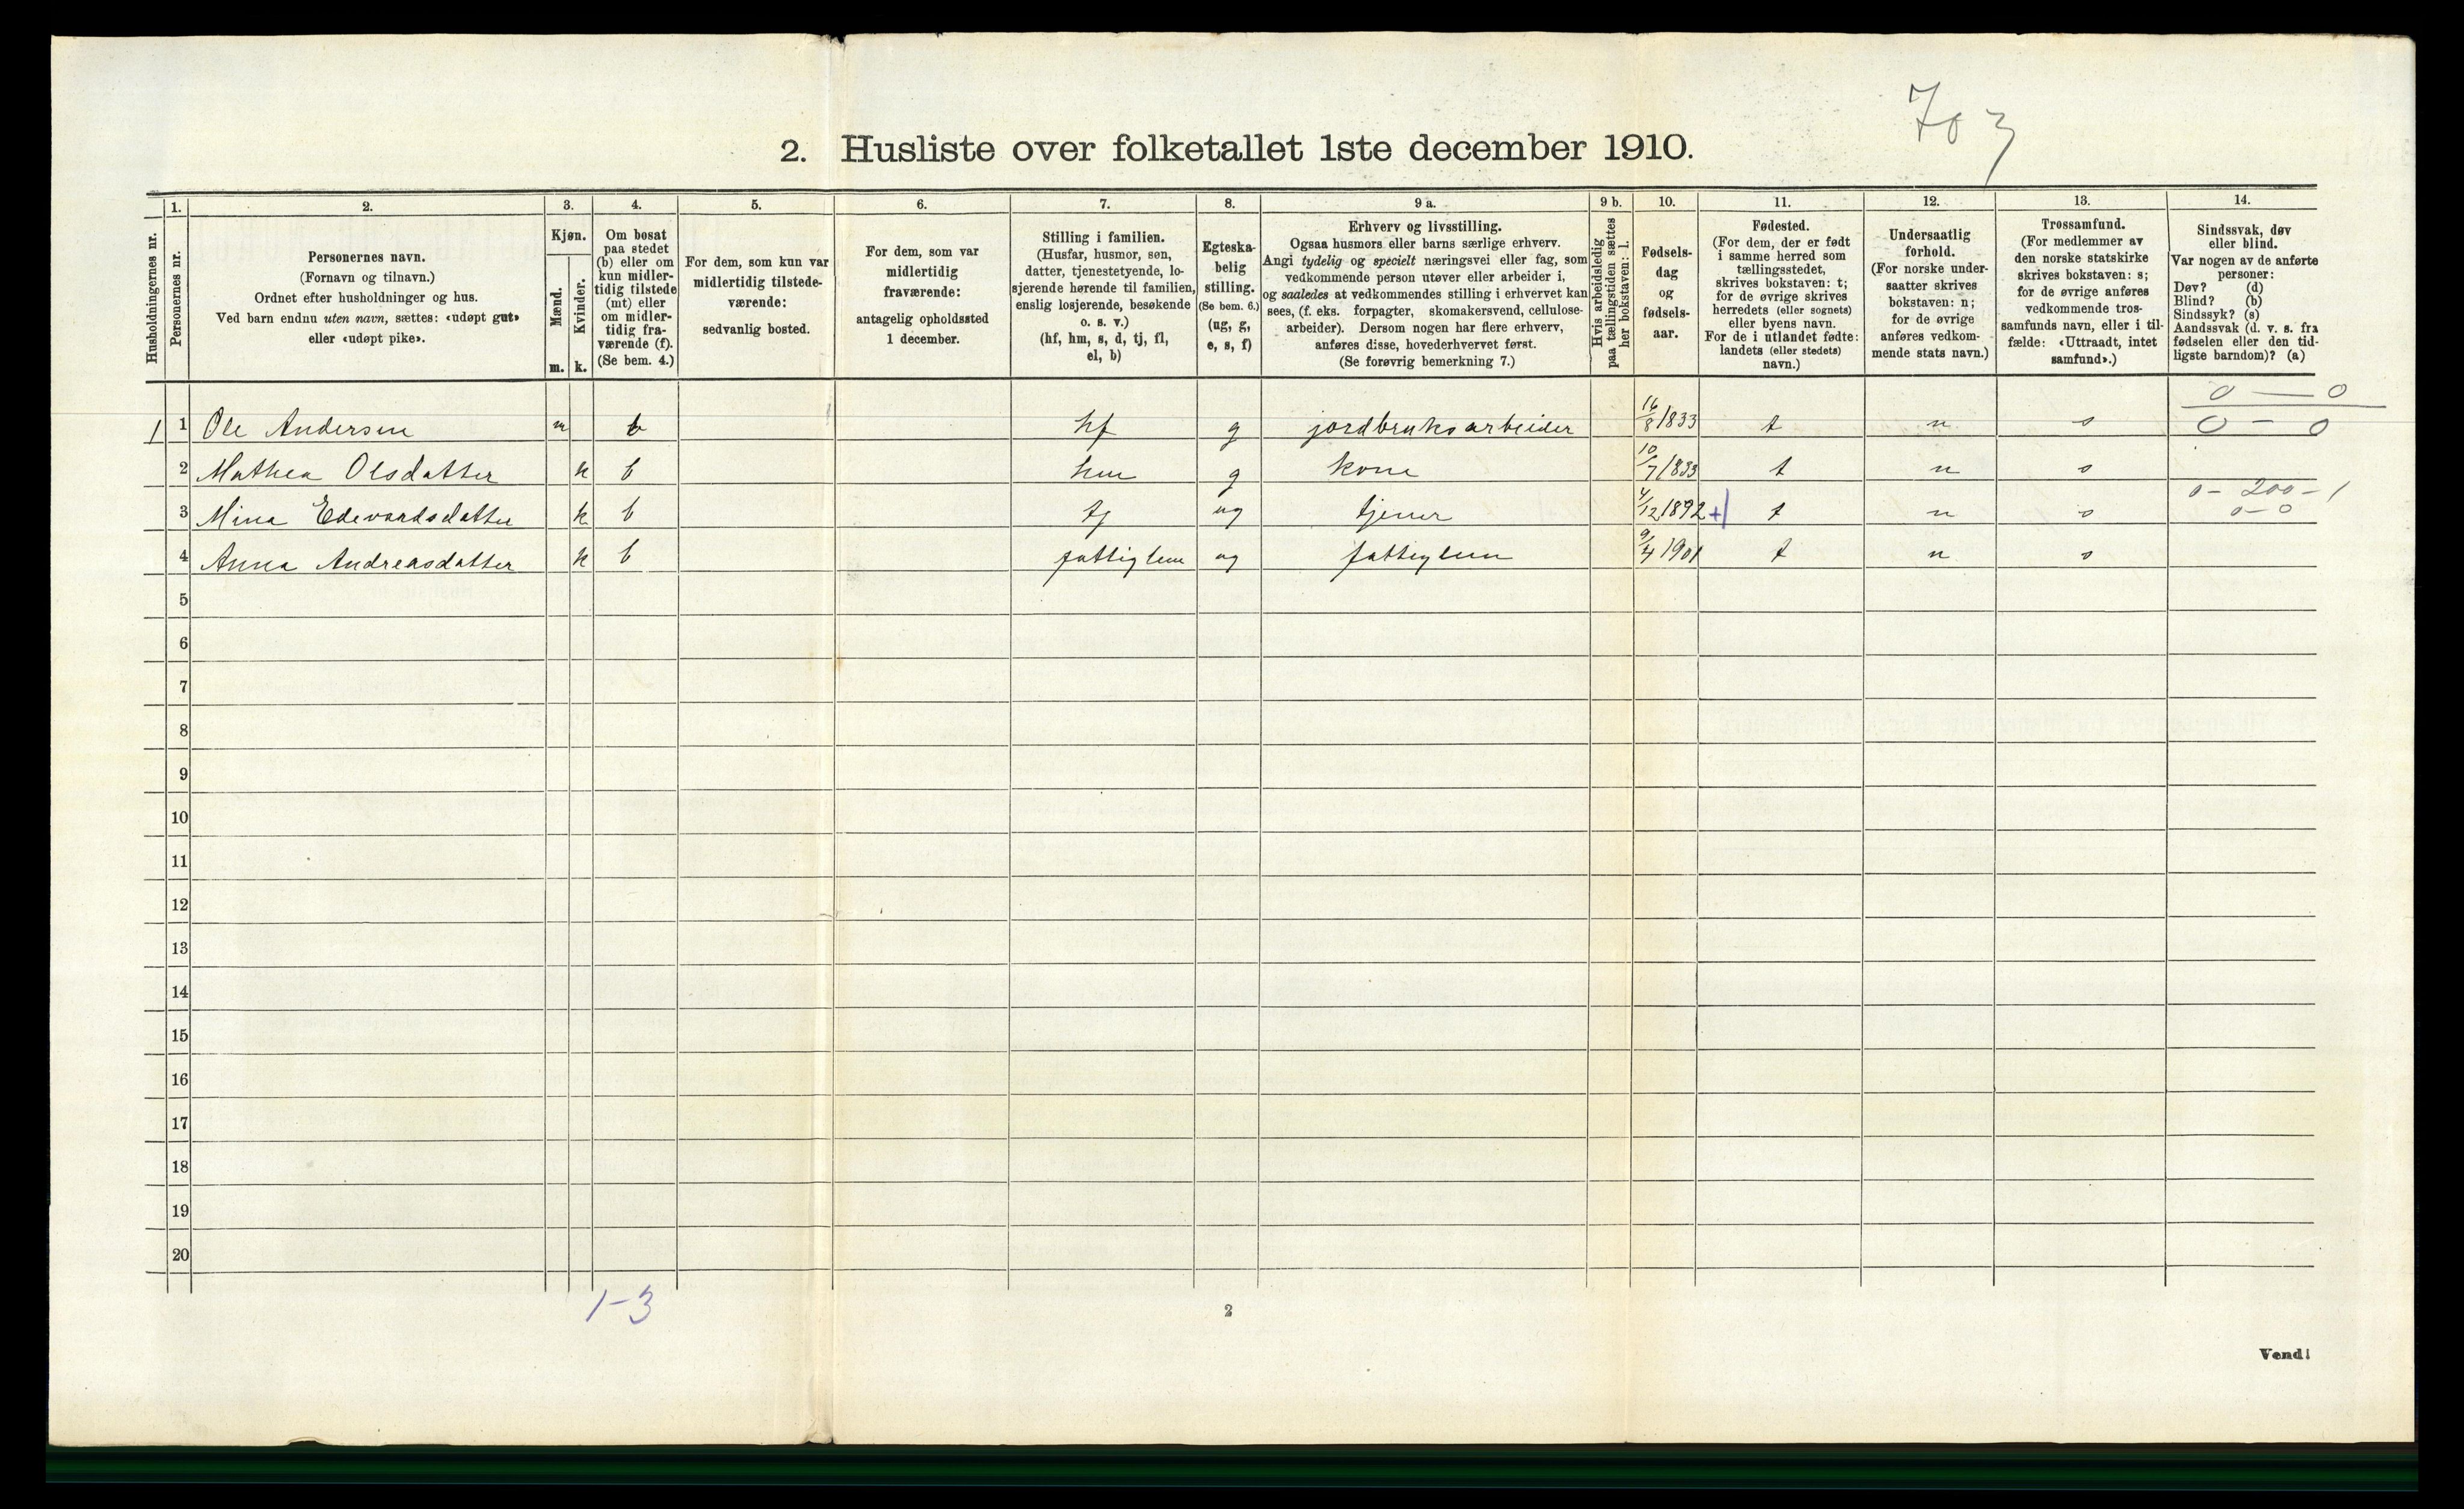 703
2. Husliste over folketallet 1ste december 1910.
Husholdningernes nr.
1.
Personernes nr.
2.
Personernes navn.
(Fornavn og tilnavn.)
Ordnet efter husholdninger og hus.
Ved barn endnu uten navn, sættes: «udøpt gut»
eller «udøpt pike».
3.
Kjøn.
Mænd.
Kvinder.
m. k.
4.
Om bosat
paa stedet
(b) eller om
kun midler-
tidig tilstede
(mt) eller
om midler-
tidig fra-
værende (f).
(Se bem. 4.)
5.
For dem, som kun var
midlertidig tilstede-
værende:
sedvanlig bosted.
6.
For dem, som var
midlertidig
fraværende:
antagelig opholdssted
1 december.
7.
Stilling i familien.
(Husfar, husmor, søn,
datter, tjenestetyende, lo-
sjerende hørende til familien,
enslig losjerende, besøkende
o. s. v.)
(hf, hm, s, d, tj, fl,
el, b)
8.
Egteska-
belig
stilling.
(Se bem. 6.)
(ug, g,
e, s, f)
9 a.
Erhverv og livsstilling.
Ogsaa husmors eller barns særlige erhverv.
Angi tydelig og specielt næringsvei eller fag, som
vedkommende person utøver eller arbeider i,
og saaledes at vedkommendes stilling i erhvervet kan
sees, (f. eks. forpagter, skomakersvend, cellulose-
arbeider). Dersom nogen har flere erhverv,
anføres disse, hovederhvervet først.
(Se forøvrig bemerkning 7.)
9 b.
Hvis arbeidsledig
paa tællingstiden sættes
her bokstaven: l.
10.
Fødsels-
dag
og
fødsels-
aar.
11.
Fødested.
(For dem, der er født
i samme herred som
tællingsstedet,
skrives bokstaven: t;
for de øvrige skrives
herredets (eller sognets)
eller byens navn.
For de i utlandet fødte:
landets (eller stedets)
navn.)
12.
Undersaatlig
forhold.
(For norske under-
saatter skrives
bokstaven: n;
for de øvrige
anføres vedkom-
mende stats navn.)
13.
Trossamfund.
(For medlemmer av
den norske statskirke
skrives bokstaven: s;
for de øvrige anføres
vedkommende tros-
samfunds navn, eller i til-
fælde: «Uttraadt, intet
samfund».)
14.
Sindssvak, døv
eller blind.
Var nogen av de anførte
personer:
Døv? (d)
Blind? (b)
Sindssyk? (s)
Aandssvak (d. v. s. fra
fødselen eller den tid-
ligste barndom)? (a)
0 — 0
1 1 Ole Andersen m b hf g jordbruksarbeider 16/8 1833 t n s 0 - 0
2 Mathea Olsdatter k b hm g kone 10/7 1833 t n s
0 - 200 - 1
3 Mina Edevardsdatter k b tj ug tjener 4/12 1892 + t n s 0-0
4 Anna Andreasdatter k b fattiglem ug fattiglem 9/4 1901 t n s
5
6
7
8
9
10
11
12
13
14
15
16
17
18
19
20
1-3
2
Vend!